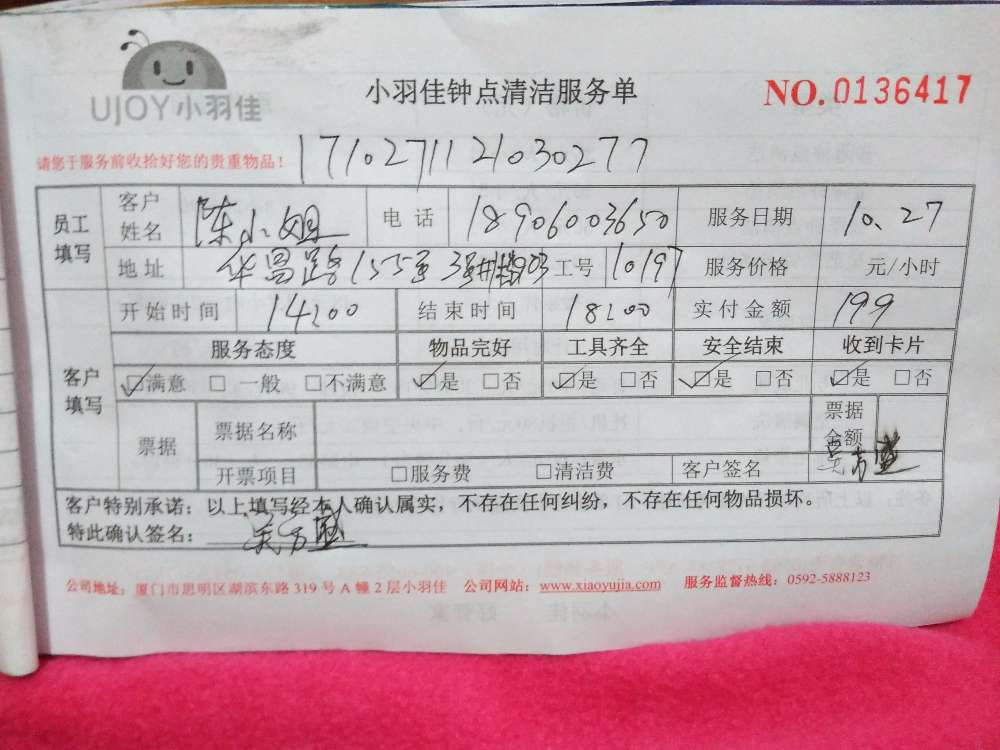 UJOY小羽佳
小羽佳钟点清洁服务单
NO.0136417
请您于服务前收拾好您的贵重物品!
171027112103027​7
员工填写 客户姓名 陈小姐 电话 18906003650 服务日期 10.27
地址 华昌路155号3 工号 10197 服务价格 元/小时
客户填写 开始时间 14:00 结束时间 18:00 实付金额 199
服务态度 物品完好 工具齐全 安全结束 收到卡片
☑满意 □一般 □不满意 ☑是 □否 ☑是 □否 ☑是 □否 ☑是 □否
票据 票据名称 票据金额
开票项目 □服务费 □清洁费 客户签名
客户特别承诺:以上填写经本人确认属实,不存在任何纠纷,不存在任何物品损坏。
特此确认签名:
公司地址:厦门市思明区湖滨东路319号A幢2层小羽佳 公司网站:www.xiaoyujia.com 服务监督热线:0592-5888123